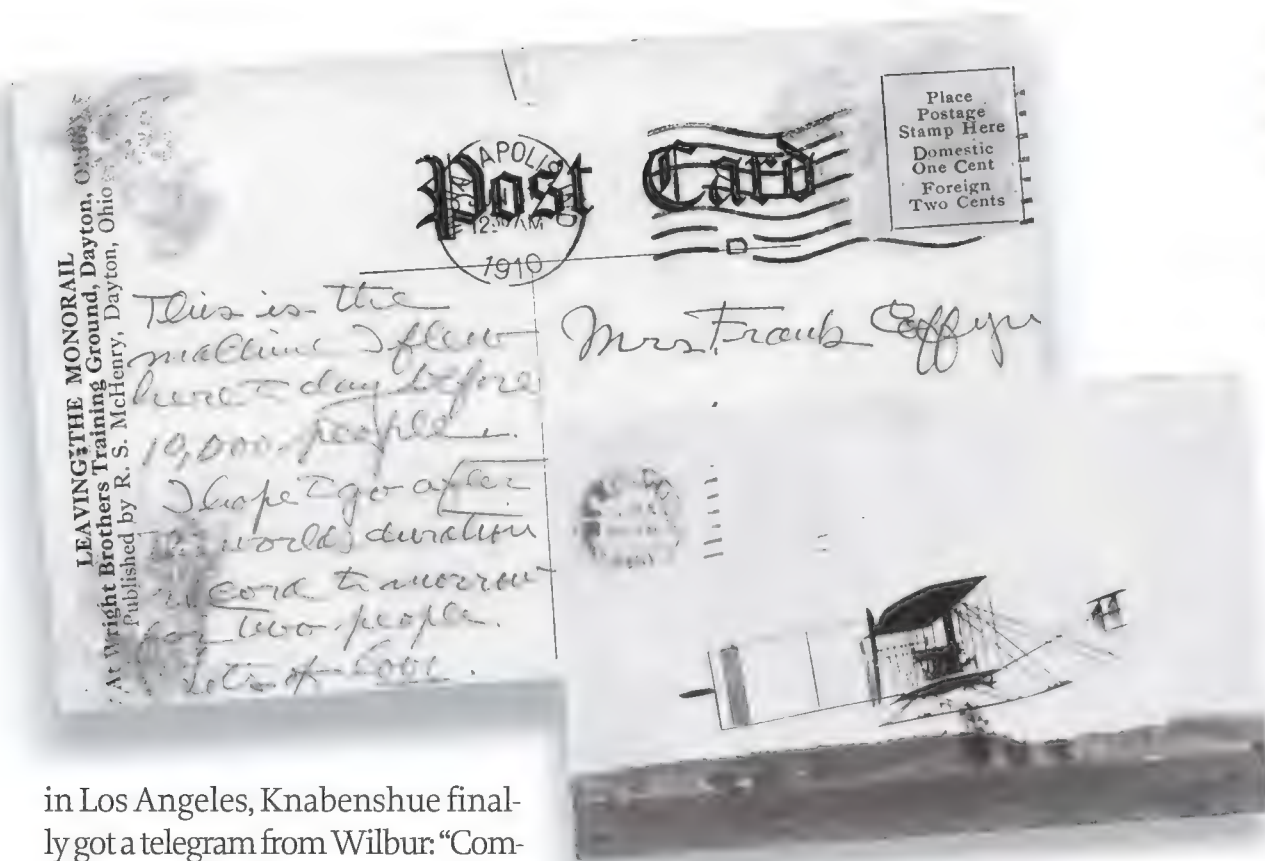 LEAVING THE MONORAIL
At Wright Brothers Training Ground, Dayton, Ohio
Published by R. S. McHenry, Dayton, Ohio
Post Card
APOLIS
12 AM
1910
Place
Postage
Stamp Here
Domestic
One Cent
Foreign
Two Cents
This is the
machine I flew
here to day before
10,000 people.
I hope to go after
the worlds duration
record tomorrow
for two people.
Lots of Love.
Mrs. Frank Coffyn
in Los Angeles, Knabenshue final-
ly got a telegram from Wilbur: “Com-